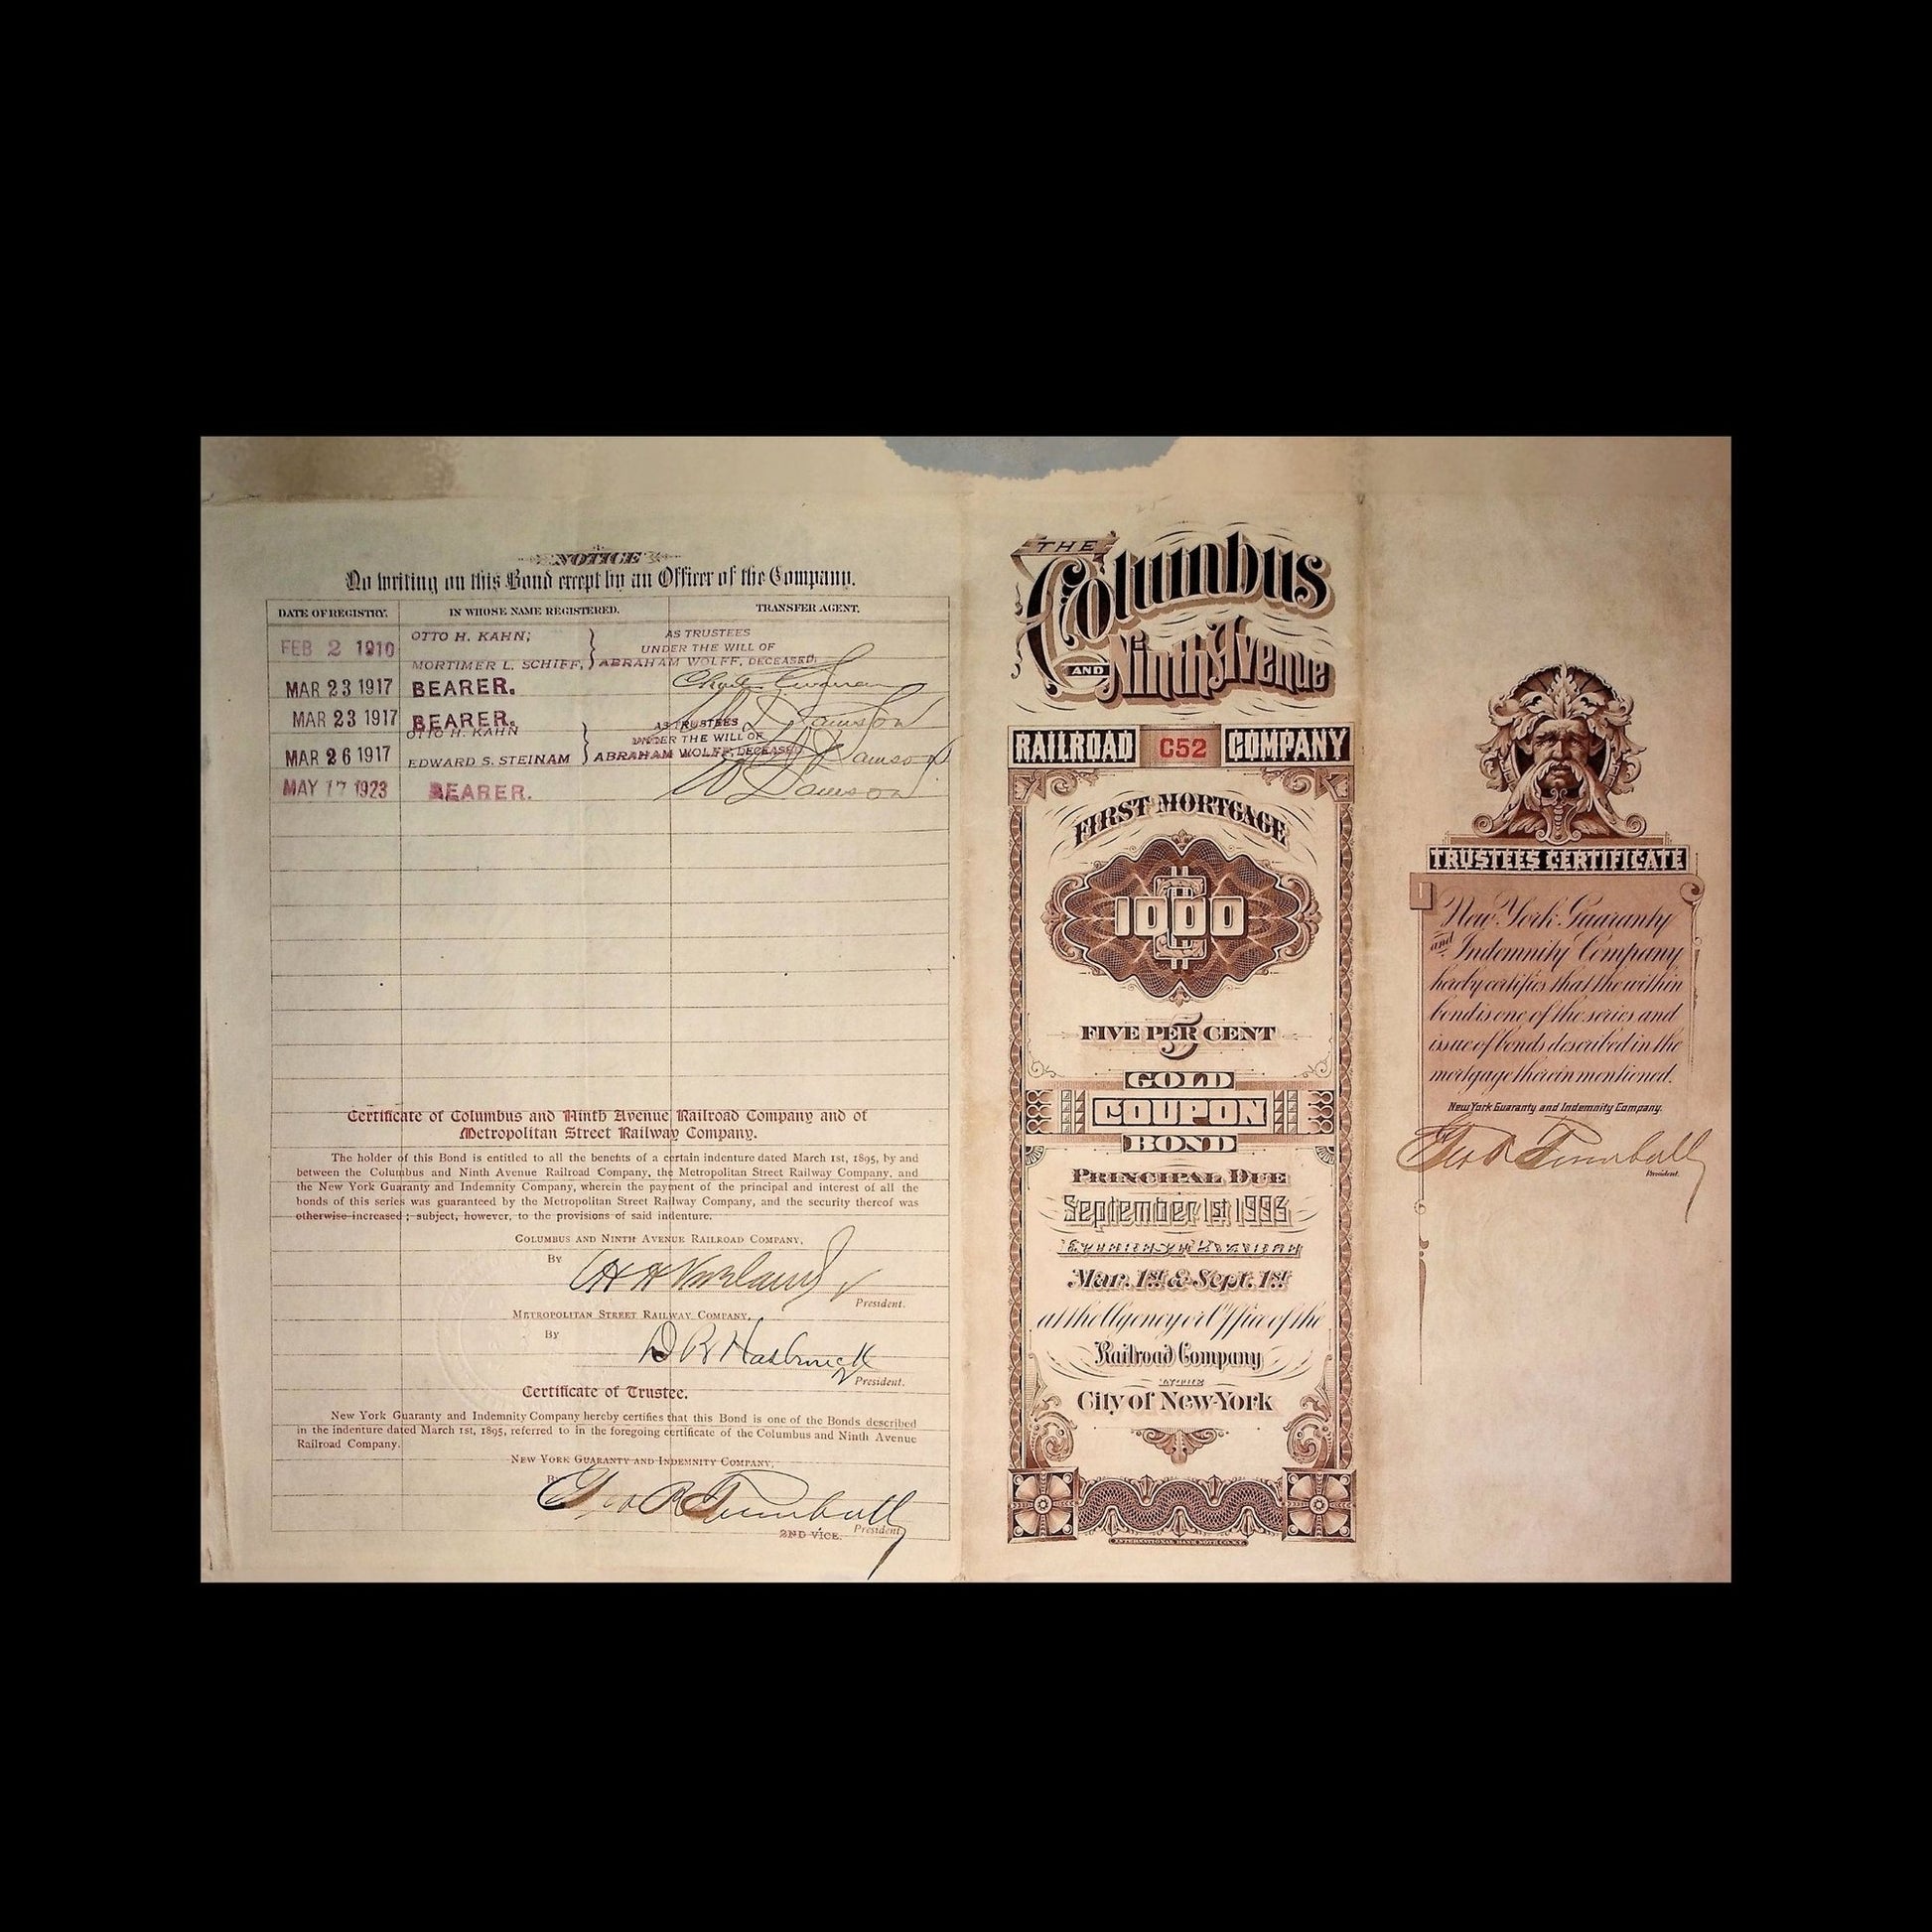 NOTICE
No writing on this Bond except by an Officer of the Company.
DATE OF REGISTRY. IN WHOSE NAME REGISTERED. TRANSFER AGENT.
FEB 2 1910 OTTO H. KAHN; MORTIMER L. SCHIFF, } AS TRUSTEES UNDER THE WILL OF ABRAHAM WOLFF, DECEASED.
MAR 23 1917 BEARER.
MAR 23 1917 BEARER. W D Dawson
MAR 26 1917 OTTO H. KAHN EDWARD S. STEINAM } AS TRUSTEES UNDER THE WILL OF ABRAHAM WOLFF, DECEASED W D Dawson
MAY 17 1923 BEARER. W D Dawson
Certificate of Columbus and Ninth Avenue Railroad Company and of
Metropolitan Street Railway Company.
The holder of this Bond is entitled to all the benefits of a certain indenture dated March 1st, 1895, by and
between the Columbus and Ninth Avenue Railroad Company, the Metropolitan Street Railway Company, and
the New York Guaranty and Indemnity Company, wherein the payment of the principal and interest of all the
bonds of this series was guaranteed by the Metropolitan Street Railway Company, and the security thereof was
otherwise increased; subject, however, to the provisions of said indenture.
COLUMBUS AND NINTH AVENUE RAILROAD COMPANY,
By H H Vreeland
President.
METROPOLITAN STREET RAILWAY COMPANY,
By D B Hasbrouck
V President.
Certificate of Trustee.
New York Guaranty and Indemnity Company hereby certifies that this Bond is one of the Bonds described
in the indenture dated March 1st, 1895, referred to in the foregoing certificate of the Columbus and Ninth Avenue
Railroad Company.
NEW YORK GUARANTY AND INDEMNITY COMPANY,
By Geo R Turnbull
2ND VICE. President
THE
Columbus
AND Ninth Avenue
RAILROAD C52 COMPANY
FIRST MORTGAGE
$1000
FIVE PER CENT
5
GOLD
COUPON
BOND
PRINCIPAL DUE
September 1st 1993
Mar. 1st & Sept. 1st
at the Agency or Office of the
Railroad Company
IN THE
City of New-York
INTERNATIONAL BANK NOTE CO. N.Y.
TRUSTEES CERTIFICATE
New York Guaranty
and Indemnity Company
hereby certifies that the within
bond is one of the series and
issue of bonds described in the
mortgage therein mentioned.
New York Guaranty and Indemnity Company.
Geo R Turnbull
President.